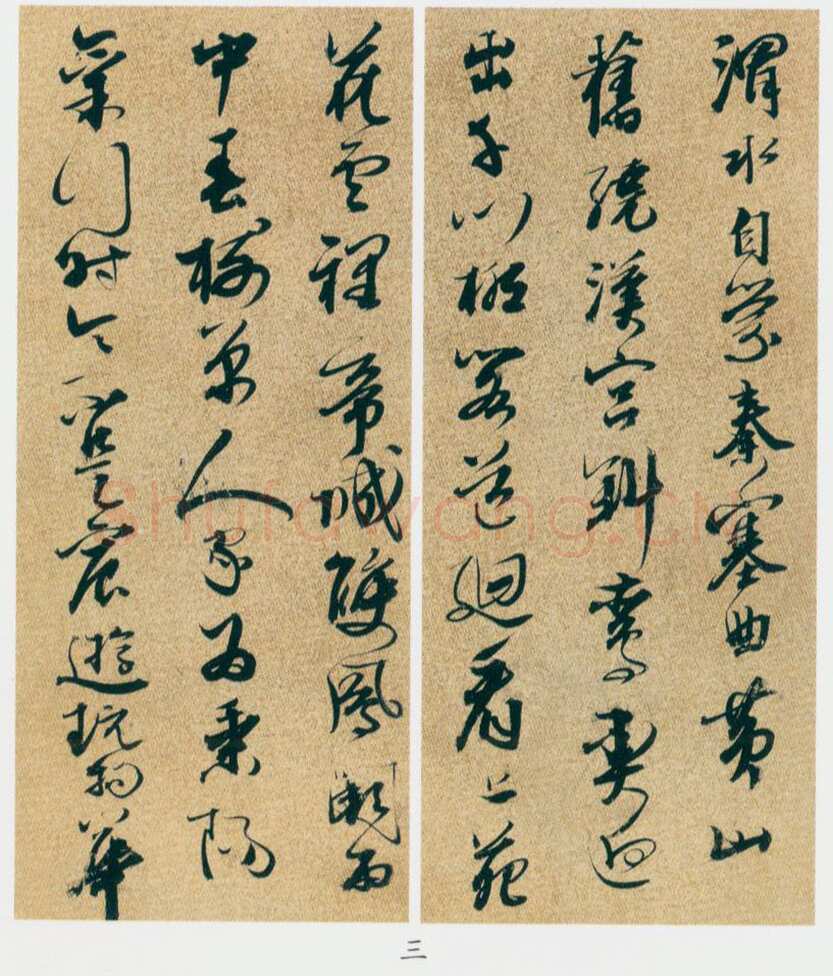 渭水自縈秦塞曲黄山
舊繞漢宮斜鸞輿迥
出千門柳閣道廻看上苑
花雲裡帝城雙鳳闕雨
中春樹萬人家為乘陽
氣行時令不是宸遊玩物華
三
shufawang.cn